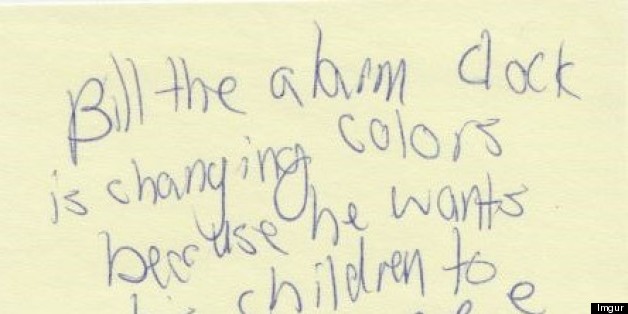 Bill the alarm clock
is changing colors
because he wants
his children to
Imgur